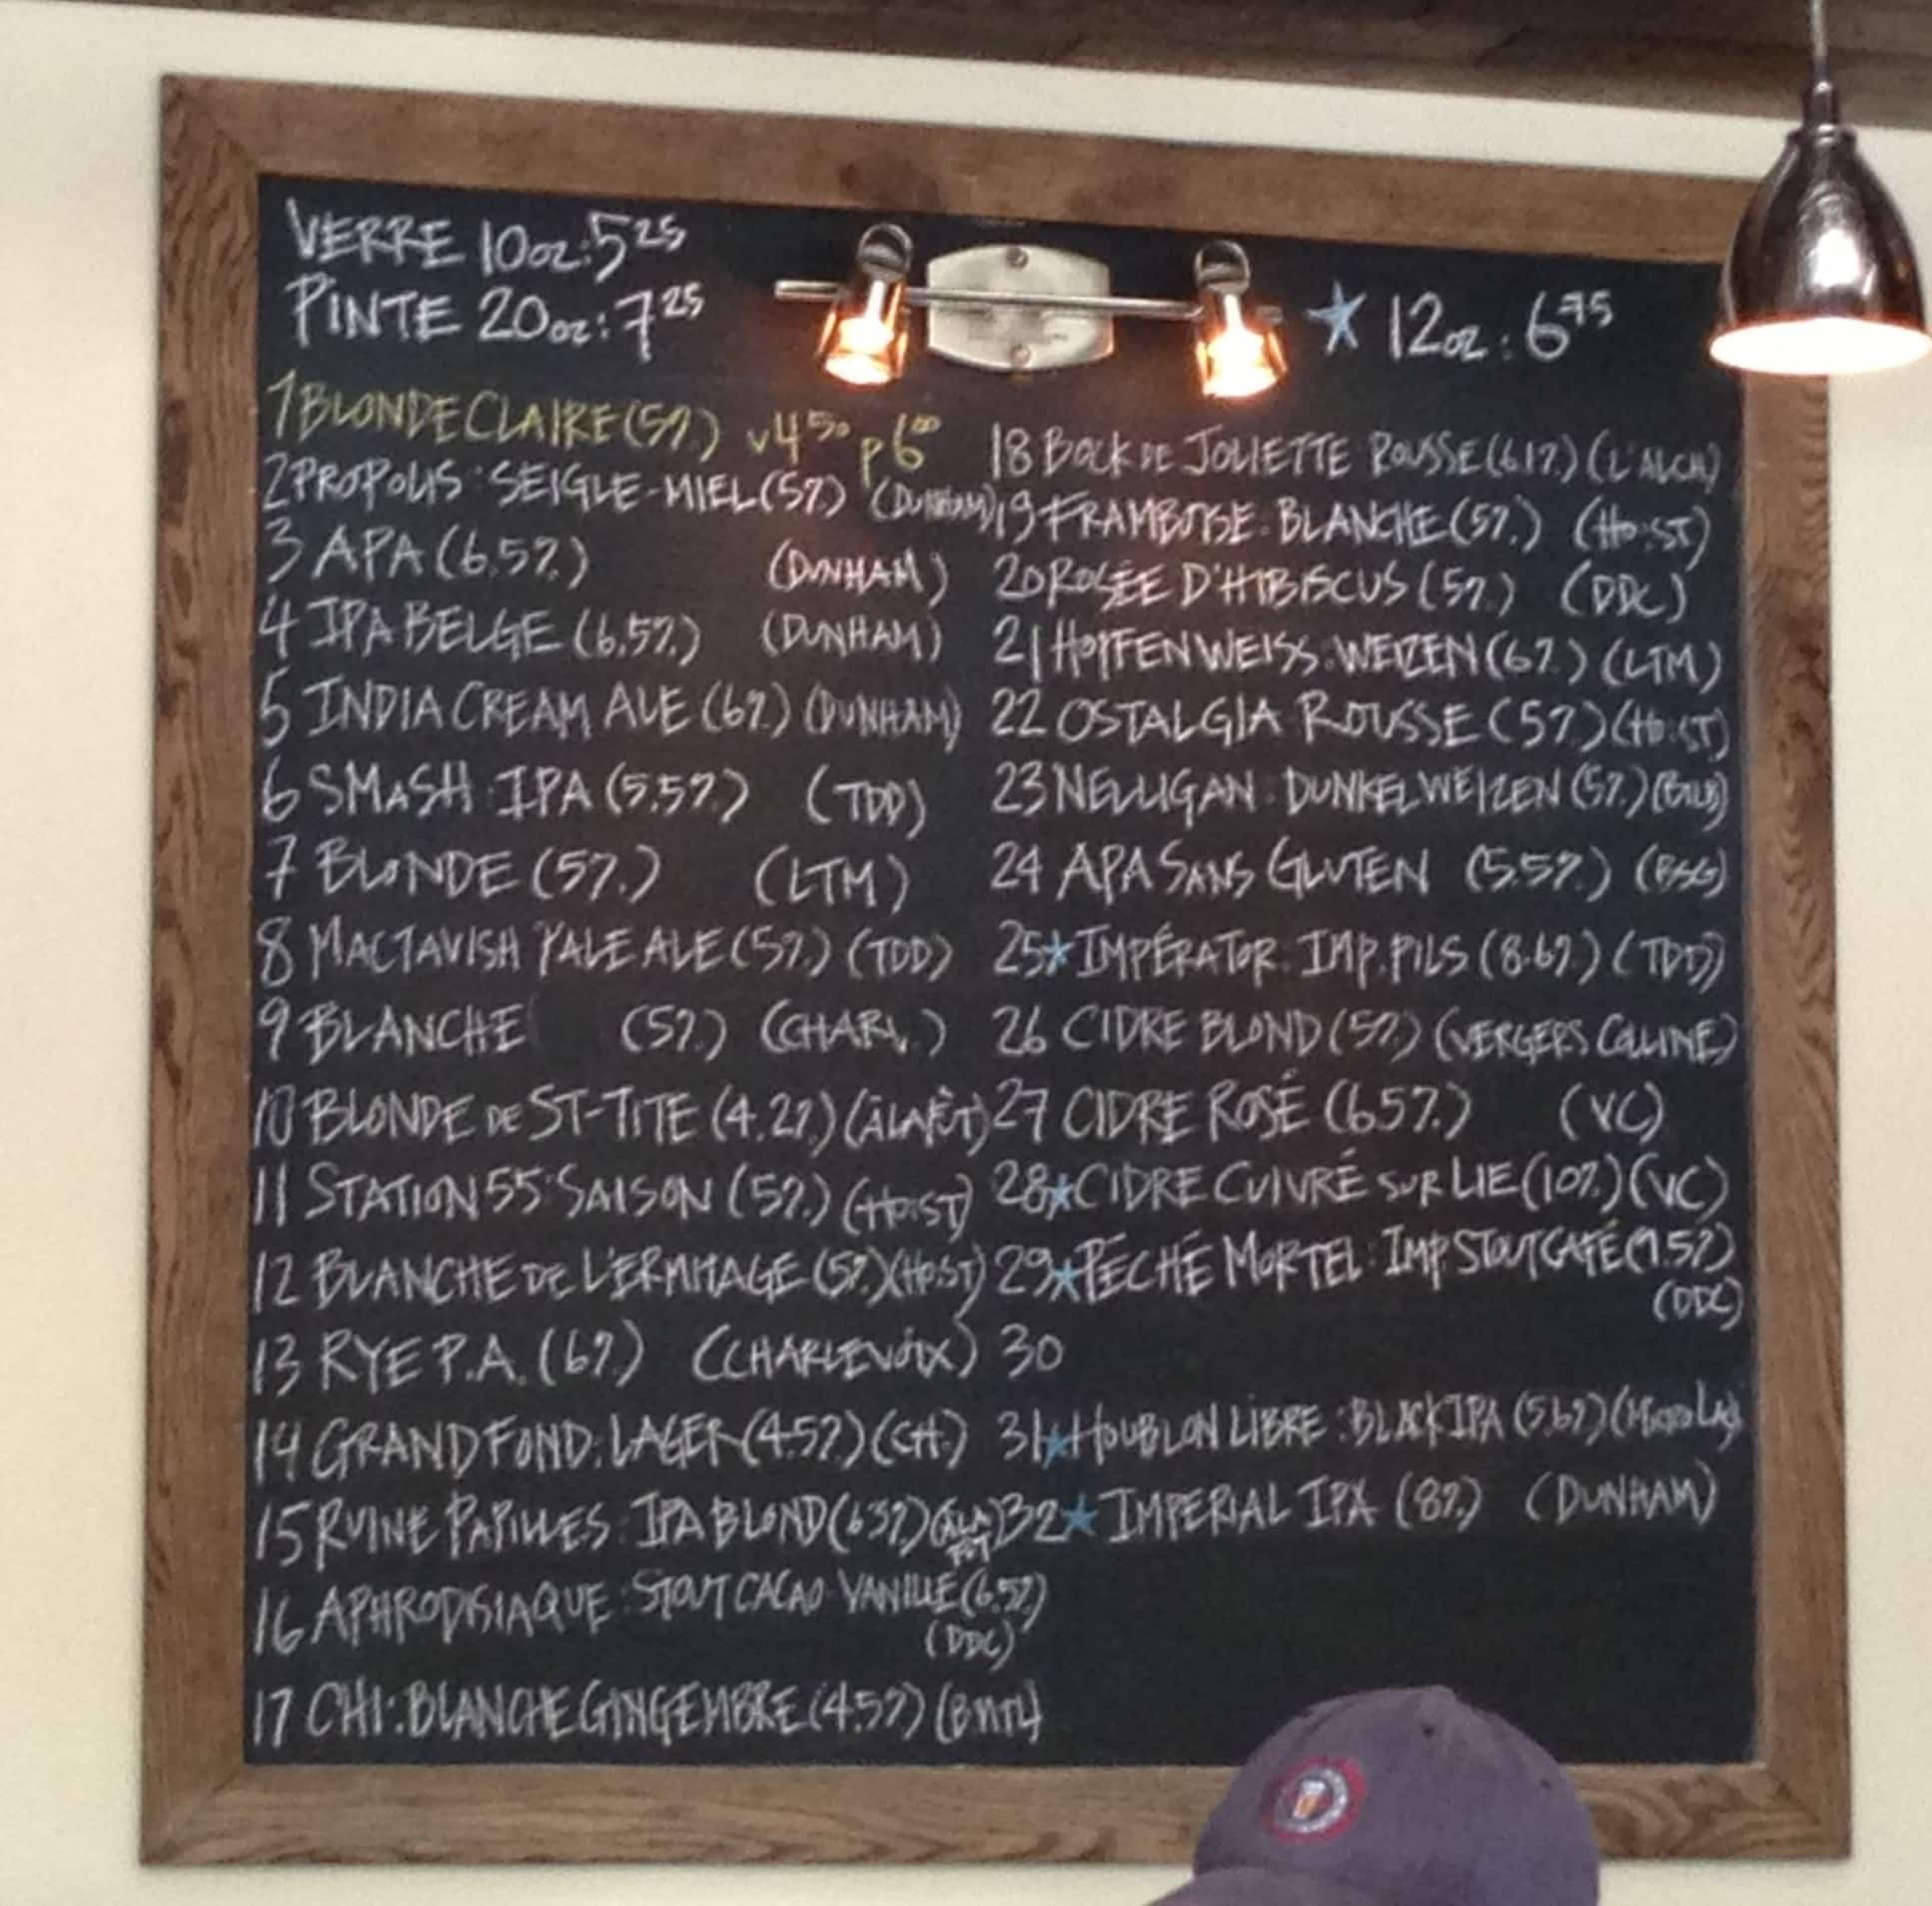 VERRE 10oz: 5.25
PINTE 20oz: 7.25
★ 12oz: 6.75
1 BLONDE CLAIRE (5%) v4.50 p6.00
2 PROPOLIS: SEIGLE-MIEL (5%) (DUNHAM)
3 APA (6.5%) (DUNHAM)
4 IPA BELGE (6.5%) (DUNHAM)
5 INDIA CREAM ALE (6%) (DUNHAM)
6 SMASH: IPA (5.5%) (TDD)
7 BLONDE (5%) (LTM)
8 MACTAVISH PALE ALE (5%) (TDD)
9 BLANCHE (5%) (CHARL.)
10 BLONDE DE ST-TITE (4.2%) (ÀLAFÛT)
11 STATION 55: SAISON (5%) (HOIST)
12 BLANCHE DE L'ERMITAGE (5%) (HOIST)
13 RYE P.A. (6%) (CHARLEVOIX)
14 GRAND FOND: LAGER (4.5%) (CH.)
15 RUINE PAPILLES: IPA BLOND (6.3%) (ÀLA FÛT)
16 APHRODISIAQUE: STOUT CACAO-VANILLE (6.5%)
(DDC)
17 CHI: BLANCHE GINGEMBRE (4.5%) (BMTL)
18 BOCK DE JOLIETTE ROUSSE (6.1%) (L'ALCH)
19 FRAMBOISE: BLANCHE (5%) (HO:ST)
20 ROSÉE D'HIBISCUS (5%) (DDC)
21 HOPFENWEISS: WEIZEN (6%) (LTM)
22 OSTALGIA ROUSSE (5%) (HO:ST)
23 NELLIGAN: DUNKELWEIZEN (5%)
24 APA SANS GLUTEN (5.5%) (BSG)
25 ★ IMPÉRATOR: IMP. PILS (8.6%) (TDD)
26 CIDRE BLOND (5%) (VERGERS COLLINE)
27 CIDRE ROSÉ (6.5%) (VC)
28 ★ CIDRE CUIVRÉ SUR LIE (10%) (VC)
29 ★ PÉCHÉ MORTEL: IMP. STOUT CAFÉ (9.5%)
(DDC)
30
31 ★ HOUBLON LIBRE: BLACK IPA (5.6%)
32 ★ IMPERIAL IPA (8%) (DUNHAM)